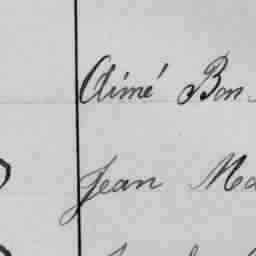 Aimé Bon
Jean Ma